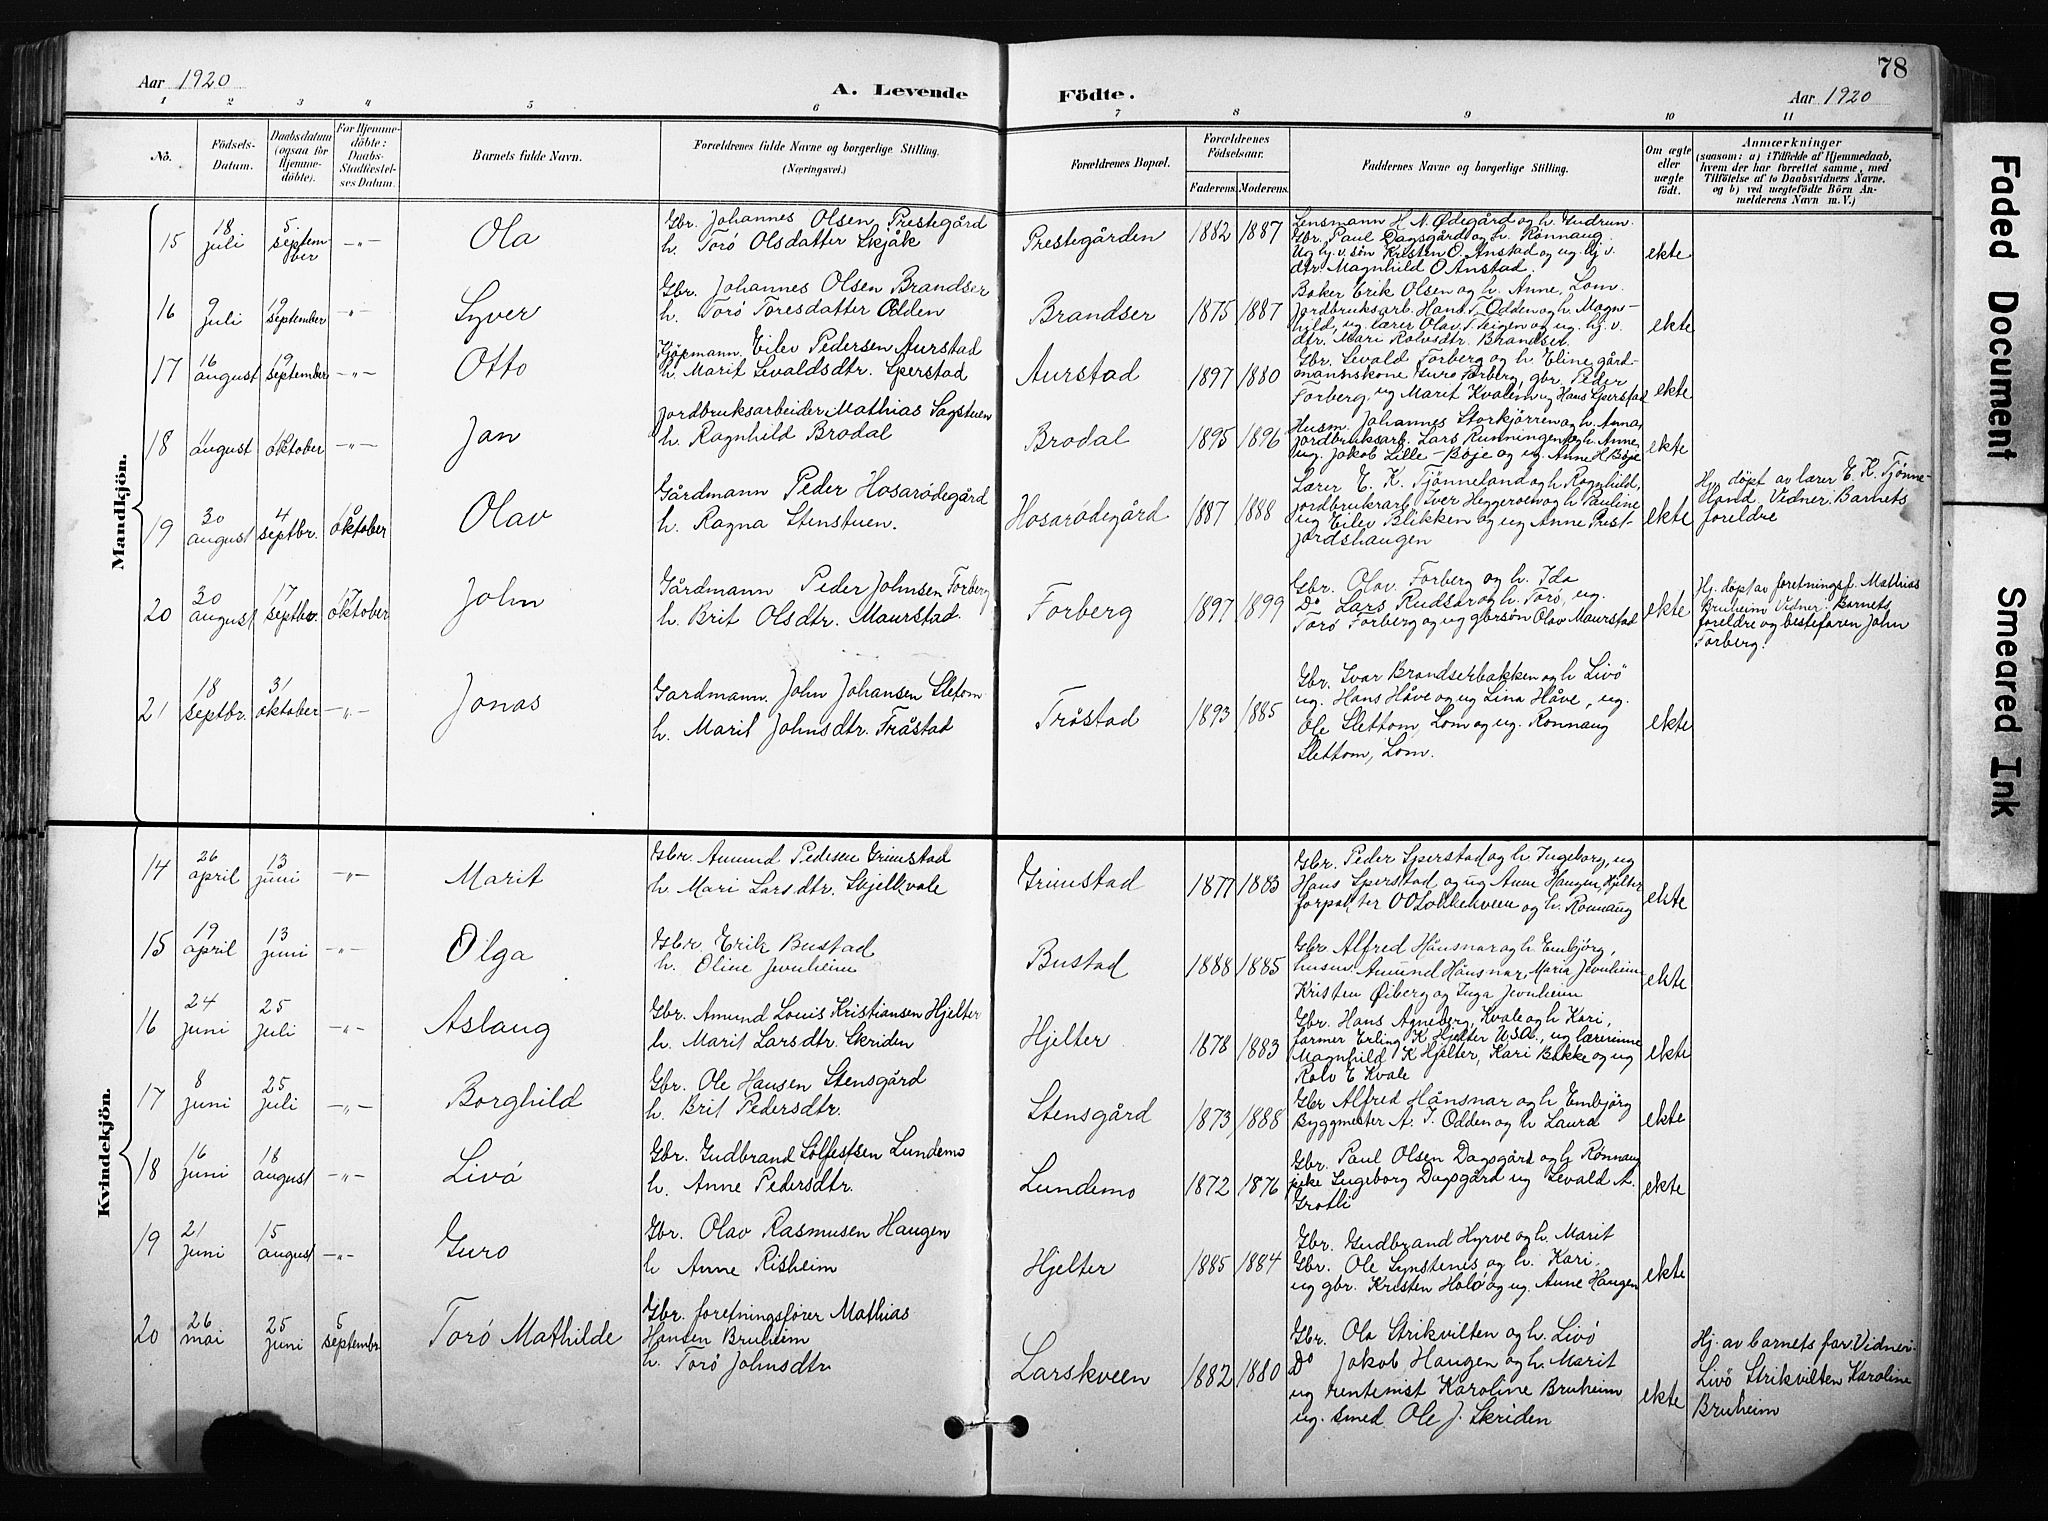 78
Aar 1920
A. Levende Födte.
Aar 1920
1 2 3 4 5 6 7 8 9 10 11
No.
Födsels-
Datum.
Daabsdatum
(ogsaa for
Hjemme-
döbte).
For Hjemme-
döbte:
Daabs-
Stadfæstel-
ses Datum.
Barnets fulde Navn.
Forældrenes fulde Navne og borgerlige Stilling.
(Næringsvei.)
Forældrenes Bopæl.
Forældrenes
Födselsaar.
Faderens. Moderens.
Faddernes Navne og borgerlige Stilling.
Om ægte
eller
uægte
födt.
Anmærkninger
(saasom: a) i Tilfælde af Hjemmedaab,
hvem der har forrettet samme, med
Tilföielse af to Daabsvidners Navne,
og b) ved uægtefödte Börn An-
melderens Navn m. V.)
Mandkjön.
15
18
juli
5.
septem
ber
-"-
Ola
Gbr. Johannes Olsen Prestegård
h. Torö Olsdatter Skjåk
Prestegården
1882 1887
Lensmann H. N. Ødegård og h. Gudrun.
Gbr. Paul Dagsgård og h. Rönnaug
Ug hj. v. sön Kristen O. Anstad og ug. hj. v.
dtr. Magnhild O Anstad.
ekte
16
9
juli
19
september
-"-
Syver
Gbr. Johannes Olsen Brandser
h. Torö Toresdatter Odden
Brandser
1875 1887
Baker Erik Olsen og h. Anne, Lom.
Jordbruksarb. Hans T. Odden og h. Magn-
hild, ug. lærer Olav T. Teigen og ug. hj. v.
dtr. Mari Rolvsdtr. Brandser.
ekte
17
16
august
19
september
-"-
Otto
Kjöpmann Eilev Pedersen Aurstad
h. Marit Sevaldsdtr. Sperstad
Aurstad
1897 1880
Gbr. Sevald Forberg og h Eline gård-
mannskone Guro Forberg, gbr. Peder
Forberg, ug Marit Kvalem ug Hans Sperstad
ekte
18
11
august
10
oktober
-"-
Jan
Jordbruksarbeider Mathias Sagstuen
h. Ragnhild Brodal
Brodal
1895 1896
Husm. Johannes Storkjörren og h. Anna,
jordbruksarb. Lars Runningen og h. Anne,
ug. Jakob Lille-Böje og ug. Anne H Böje
ekte
19
30
august
4
septbr.
oktober
Olav
Gårdmann Peder Hosarødegård
h. Ragna Stenstuen.
Hosarødegård
1887 1888
Lærer E. K. Tjönneland og h. Ragnhild,
jordbrukrarb. Iver Heggeroen og h Pauline
ug Eilev Blikken og ug Anne Prest-
jordshaugen
ekte
Hj. döpt av lærer E K. Tjönne-
land. Vidner. Barnets
foreldre
20
30
august
17
septbr.
17
oktober
John
Gårdmann Peder Johnsen Forberg
h. Brit Olsdtr. Maurstad.
Forberg
1897 1899
Gbr. Olav Forberg og h. Ida
Do Lars Rudsar og h. Torö, ug.
Torö Forberg og ug gbrsön Olav Maurstad
ekte
Hj. döpt av foretningsf. Mathias
Bruheim Vidner. Barnets
foreldre og bestefaren John
Forberg.
21
18
septbr.
31
oktober
-"-
Jonas
Gardmann. John Johansen Sletom
h. Marit Johnsdtr. Tråstad
Tråstad
1893 1885
Gbr. Ivar Brandserbakken og h Livö
ug. Hans Håve og ug Lina Håve, ug.
Ole Slettom, Lom og ug. Rönnaug
Slettom, Lom.
ekte
Kvindekjön.
14
26
april
13
juni
-"-
Marit
Gbr. Amund Pedesen Grimstad
h. Mari Larsdtr. Skjelkvale
Grimstad
1877 1883
Gbr. Peder Sperstad og h. Ingeborg, ug
Hans Sperstad og ug Anne Haugen, Hjelter
forpakter O O og h. Rönnaug
ekte
15
19
april
13
juni
-"-
Olga
Gbr. Erik Bustad
h. Oline Jevnheim
Bustad
1888 1885
Gbr Alfred Hånsnar og h. Embjörg,
husm. Amund Hånsnar, Maria Jevnheim
Kristen Øiberg og Inga Jevnheim
ekte
16
24
juni
25
juli
-"-
Aslaug
Gbr. Amund Louis Kristiansen Hjelter
h. Marit Larsdtr. Skriden
Hjelter
1878 1883
Gbr. Hans Agneberg, Kvale og h Kari,
farmer Erling K Hjelter U.S.A., ug lærerinne
Magnhild K Hjelter, Kari Bakke og ug
Rolv E Kvale
ekte
17
8
juni
25
juli
-"-
Borghild
Gbr. Ole Hansen Stensgård
h. Brit Pedersdtr.
Stensgård
1873 1888
Gbr Alfred Hånsnar og h Embjörg
Byggmester A. I. Odden og h Laura
ekte
18
16
juni
18
august
-"-
Livö
Gbr. Gudbrand Solfestsen Lundemo
h. Anne Pedersdtr.
Lundemo
1872 1876
Gbr. Paul Olsen Dagsgård og h Rönnaug
pike Ingeborg Dagsgård ug Sevald A.
Grotli
ekte
19
21
juni
15
august
-"-
Guro
Gbr. Olav Rasmusen Haugen
h Anne Risheim
Hjelter
1885 1884
Gbr. Gudbrand Hyrve og h. Marit
Gbr. Ole Synstenis og h. Kari
ug gbr. Kristen Holö og ug. Anne Haugen
ekte
20
26
mai
25
juni
5
september
Torö Mathilde
Gbr. foretningsförer Mathias
Hansen Bruheim
h. Torö Johnsdtr
Larskveen
1882 1880
Gbr. Ola Strikvilten og h. Livö
Do Jakob Haugen og h. Marit
ug rentenist Karoline Bruheim
ug. smed Ole J. Skriden
ekte
Hj. av barnets far. Vidner.
Livö Strikvilten Karoline
Bruheim
Faded Document
Smeared Ink